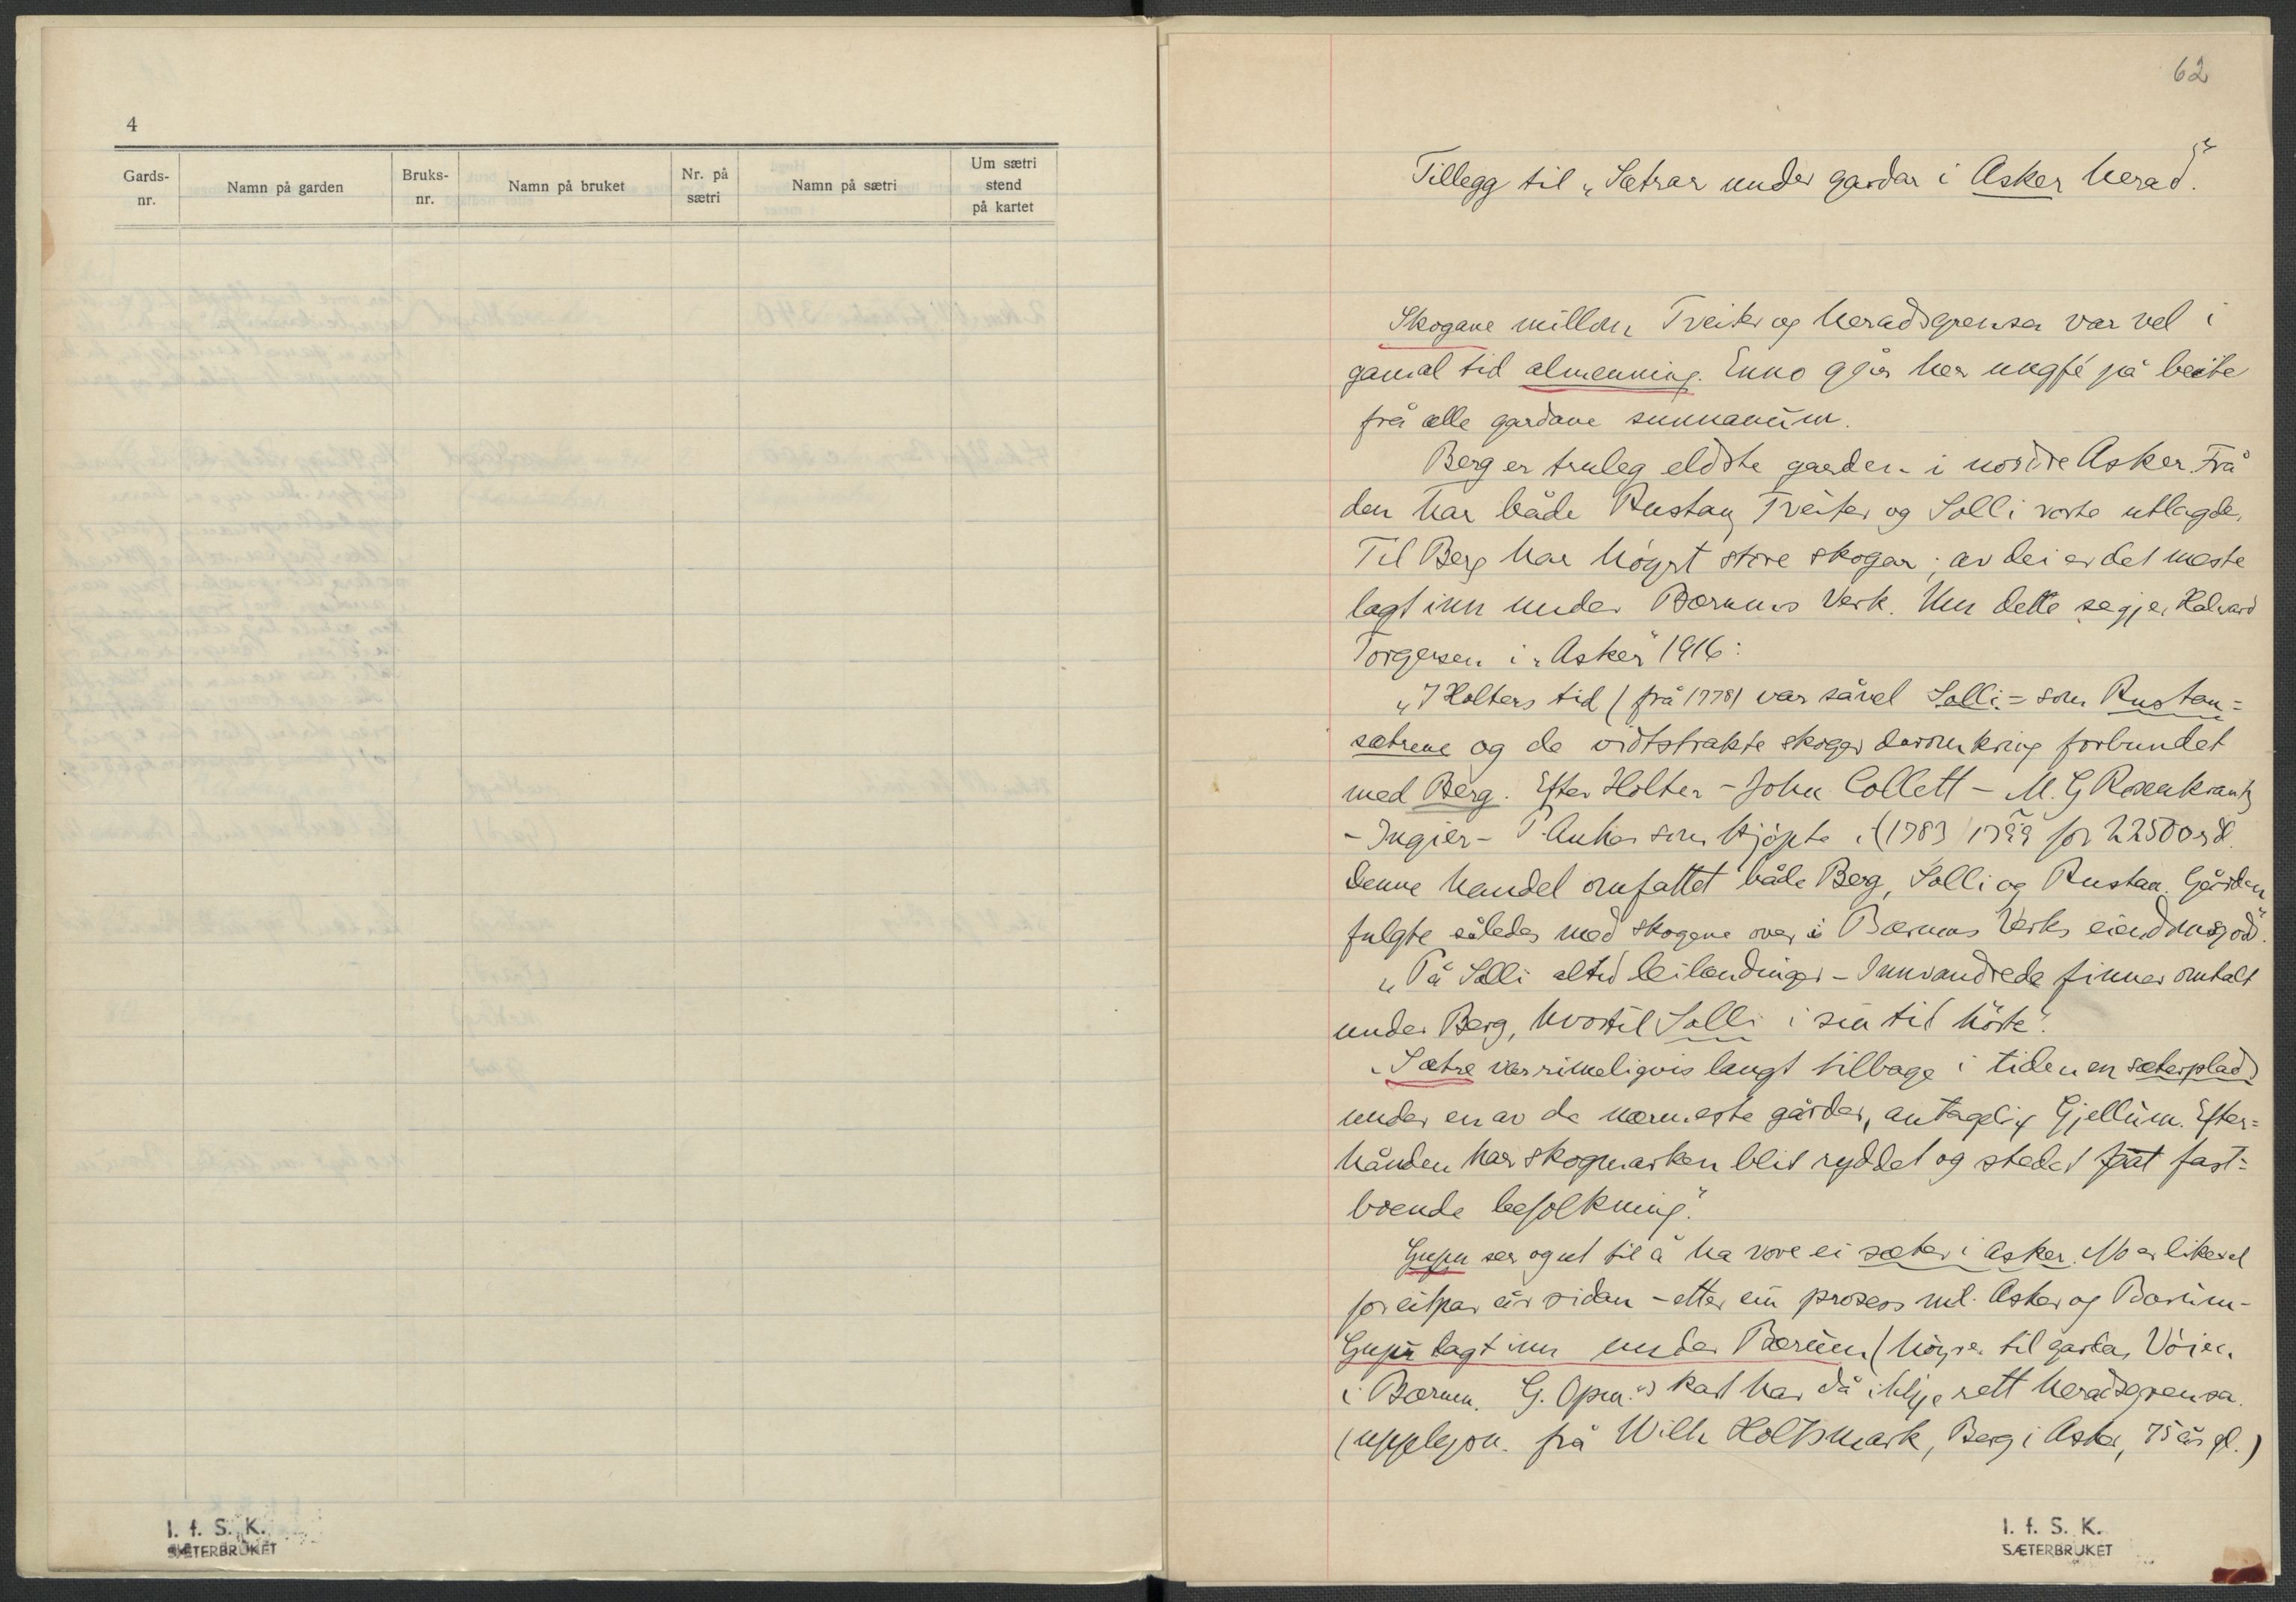 4
Gards-nr.
Namn på garden
Bruks-nr.
Namn på bruket
Nr. på sætri
Namn på sætri
Um sætri stend på kartet
I. f. S. K.
SÆTERBRUKET
62
Tillegg til „Sætrar under gardar i Asker herad".
Skogane millom Tveiter og heradsgrensa var vel i
gamal tid almenning. Enno gjår her ungfé på beite
frå alle gardane sunnanum.
Berg er truleg eldste garden i nordre Asker. Frå
den har både Rustan, Tveiter og Solli vorte utlagde.
Til Berg har høyrt store skogar; av dei er det meste
lagt inn under Bærums Verk. Um dette segjer Halvard
Torgersen i „Asker" 1916:
„I Holters tid (frå 1778) var såvel Solli- som Rustan-
sætrene og de vidtstrakte skoger deromkring forbundet
med Berg. Efter Holter - John Collett - M. G Rosenkrantz
- Ingier - P. Anker som kjøpte (1783 1799 for 22500 rd.
Denne handel omfattet både Berg, Solli og Rustan. Gården
fulgte således med skogene over i Bærums Verks eiendomsjord".
„På Solli altid leilendinger - Innvandrede finnes omtalt
under Berg, hvortil Solli i sin tid hörte".
„Sætre var rimeligvis langt tilbage i tiden en sæterplads
under en av de nærmeste gårder, antagelig Gjellum. Efter-
hånden har skogmarken blit ryddet og stedet fåt fast-
boende befolkning".
Gupu ser og ut til å ha vore ei sæter i Asker. No er likevel
for eit par år sidan - etter ein prosess ml. Asker og Bærum -
Gupu lagt inn under Bærum (høyrer til garden Vøien
i Bærum. G. Opm.s kart har då ikkje rett heradsgrensa.
(upplysn. frå Wilh Holtsmark, Berg i Asker, 75 år gl.)
I. f. S. K.
SÆTERBRUKET